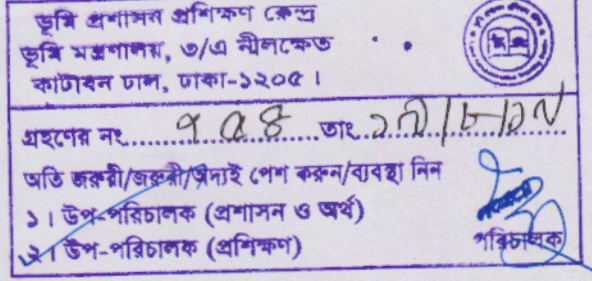 ভূমি প্রশাসন প্রশিক্ষণ কেন্দ্র
ভূমি মন্ত্রণালয়, ৩/এ নীলক্ষেত
কাটাবন ঢাল, ঢাকা-১২০৫ ।
গ্রহণের নং......৭৫৪......তাং.....
অতি জরুরী/জরুরী/অদ্যই পেশ করুন/ব্যবস্থা নিন
১। উপ-পরিচালক (প্রশাসন ও অর্থ)
২। উপ-পরিচালক (প্রশিক্ষণ)
পরিচালক